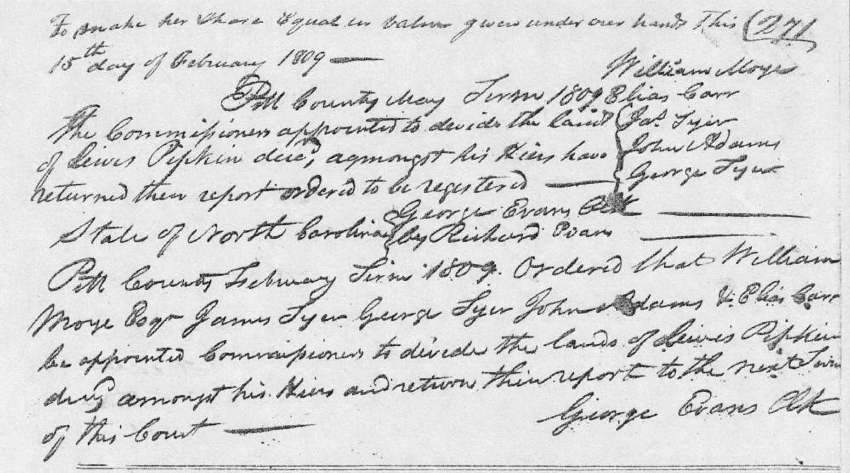 To make her Share Equal in value given under our hands This (271
15th day of February 1809 —
William Moye
Pitt County May Term 1809 Elias Carr
The Commissioners appointed to divide the land Jas. Tyer
of Lewis Pipkin decd, agmongst his Hiers have John Adams
returned their report ordered to be registered — George Tyer
George Evans Clk
State of North Carolina by Richard Evans
Pitt County February Term 1809. Ordered that William
Moye Esqr James Tyer George Tyer John Adams & Elias Carr
be appointed Commissioners to divide the lands of Lewis Pipkin
decd amongst his Hiers and return their report to the next Term
of this Court —
George Evans Clk